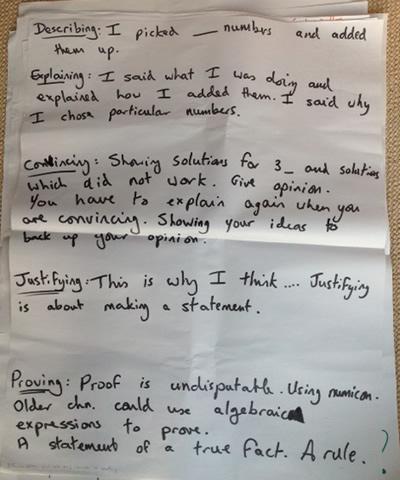 Describing: I picked __ numbers and added
them up.
Explaining: I said what I was doing and
explained how I added them. I said why
I chose particular numbers.
Convincing: Showing solutions for 3_ and solutions
which did not work. Give opinion.
You have to explain again when you
are convincing. Showing your ideas to
back up your opinion.
Justifying: This is why I think .... Justifying
is about making a statement.
Proving: Proof is undisputable. Using numicon.
Older chn. could use algebraic
expressions to prove.
A statement of a true fact. A rule. ?